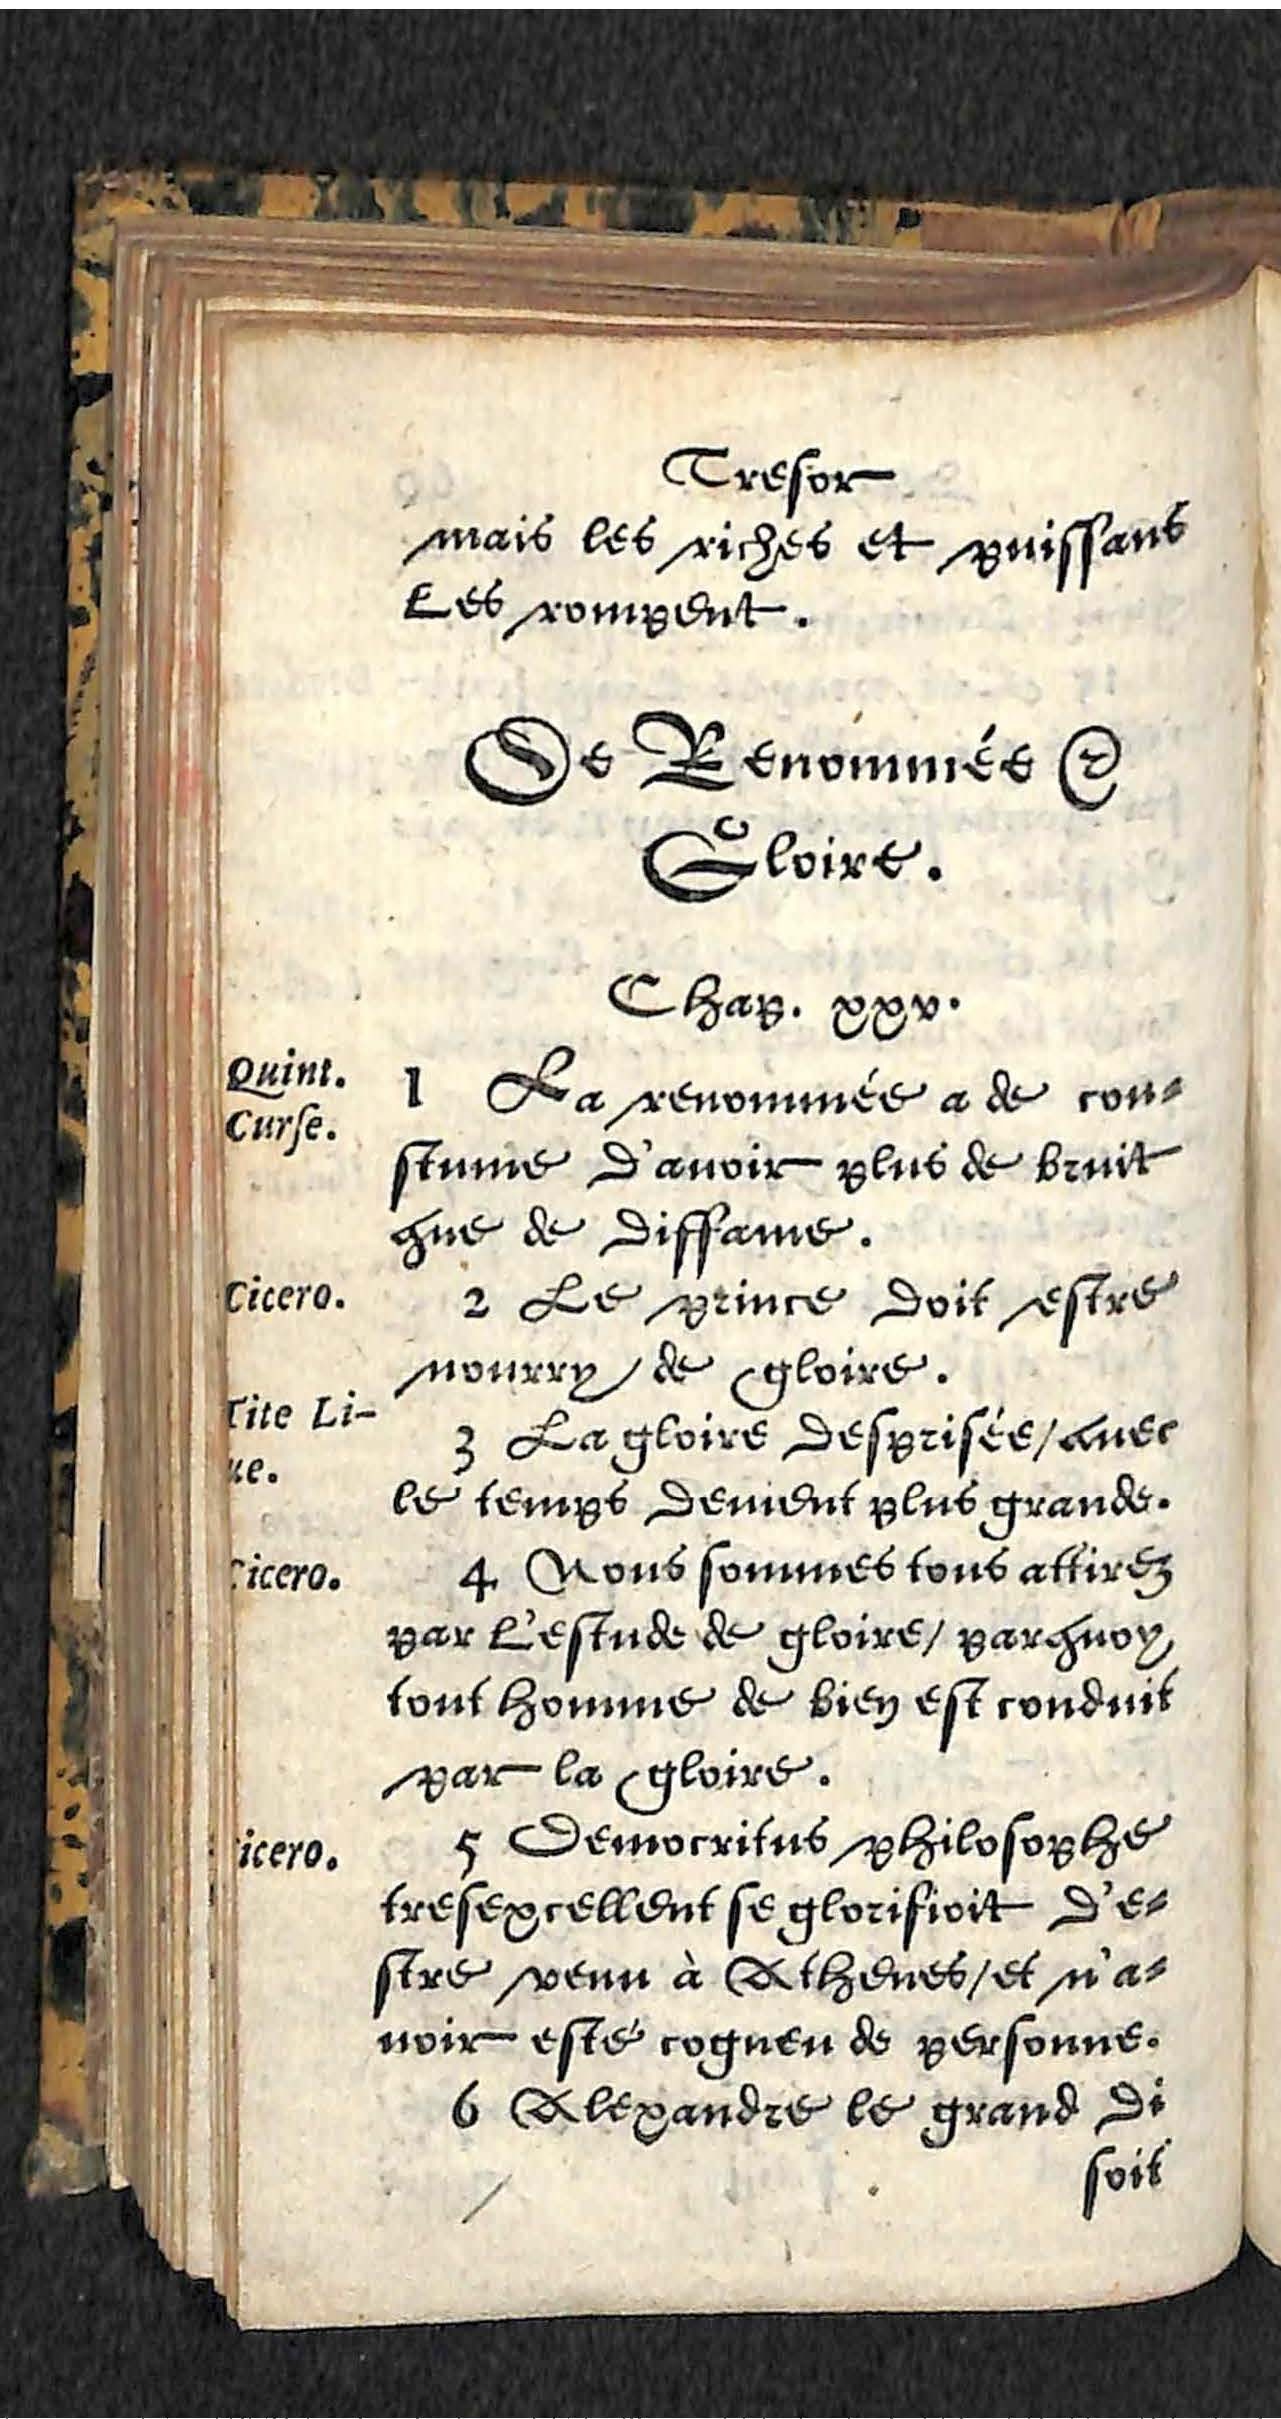 Tresor
mais les riches et puissans
Les rompent.
De Renommée &
Gloire.
Chap. xxv.
Quint.
Curse.
1 La renommée a de cou-
stume d'auoir plus de bruit
que de diffame.
Cicero.
2 Le prince doit estre
nourry de gloire.
Tite Li-
ue.
3 La gloire desprisée/auec
le temps deuient plus grande.
icero.
4 Nous sommes tous attirez
par l'estude de gloire/ parquoy
tout homme de bien est conduit
par la gloire.
icero.
5 Democritus philosophe
tresexcellent se glorifioit d'e-
stre venu à Athenes/et n'a-
uoir esté cogneu de personne.
6 Alexandre le grand di
soit